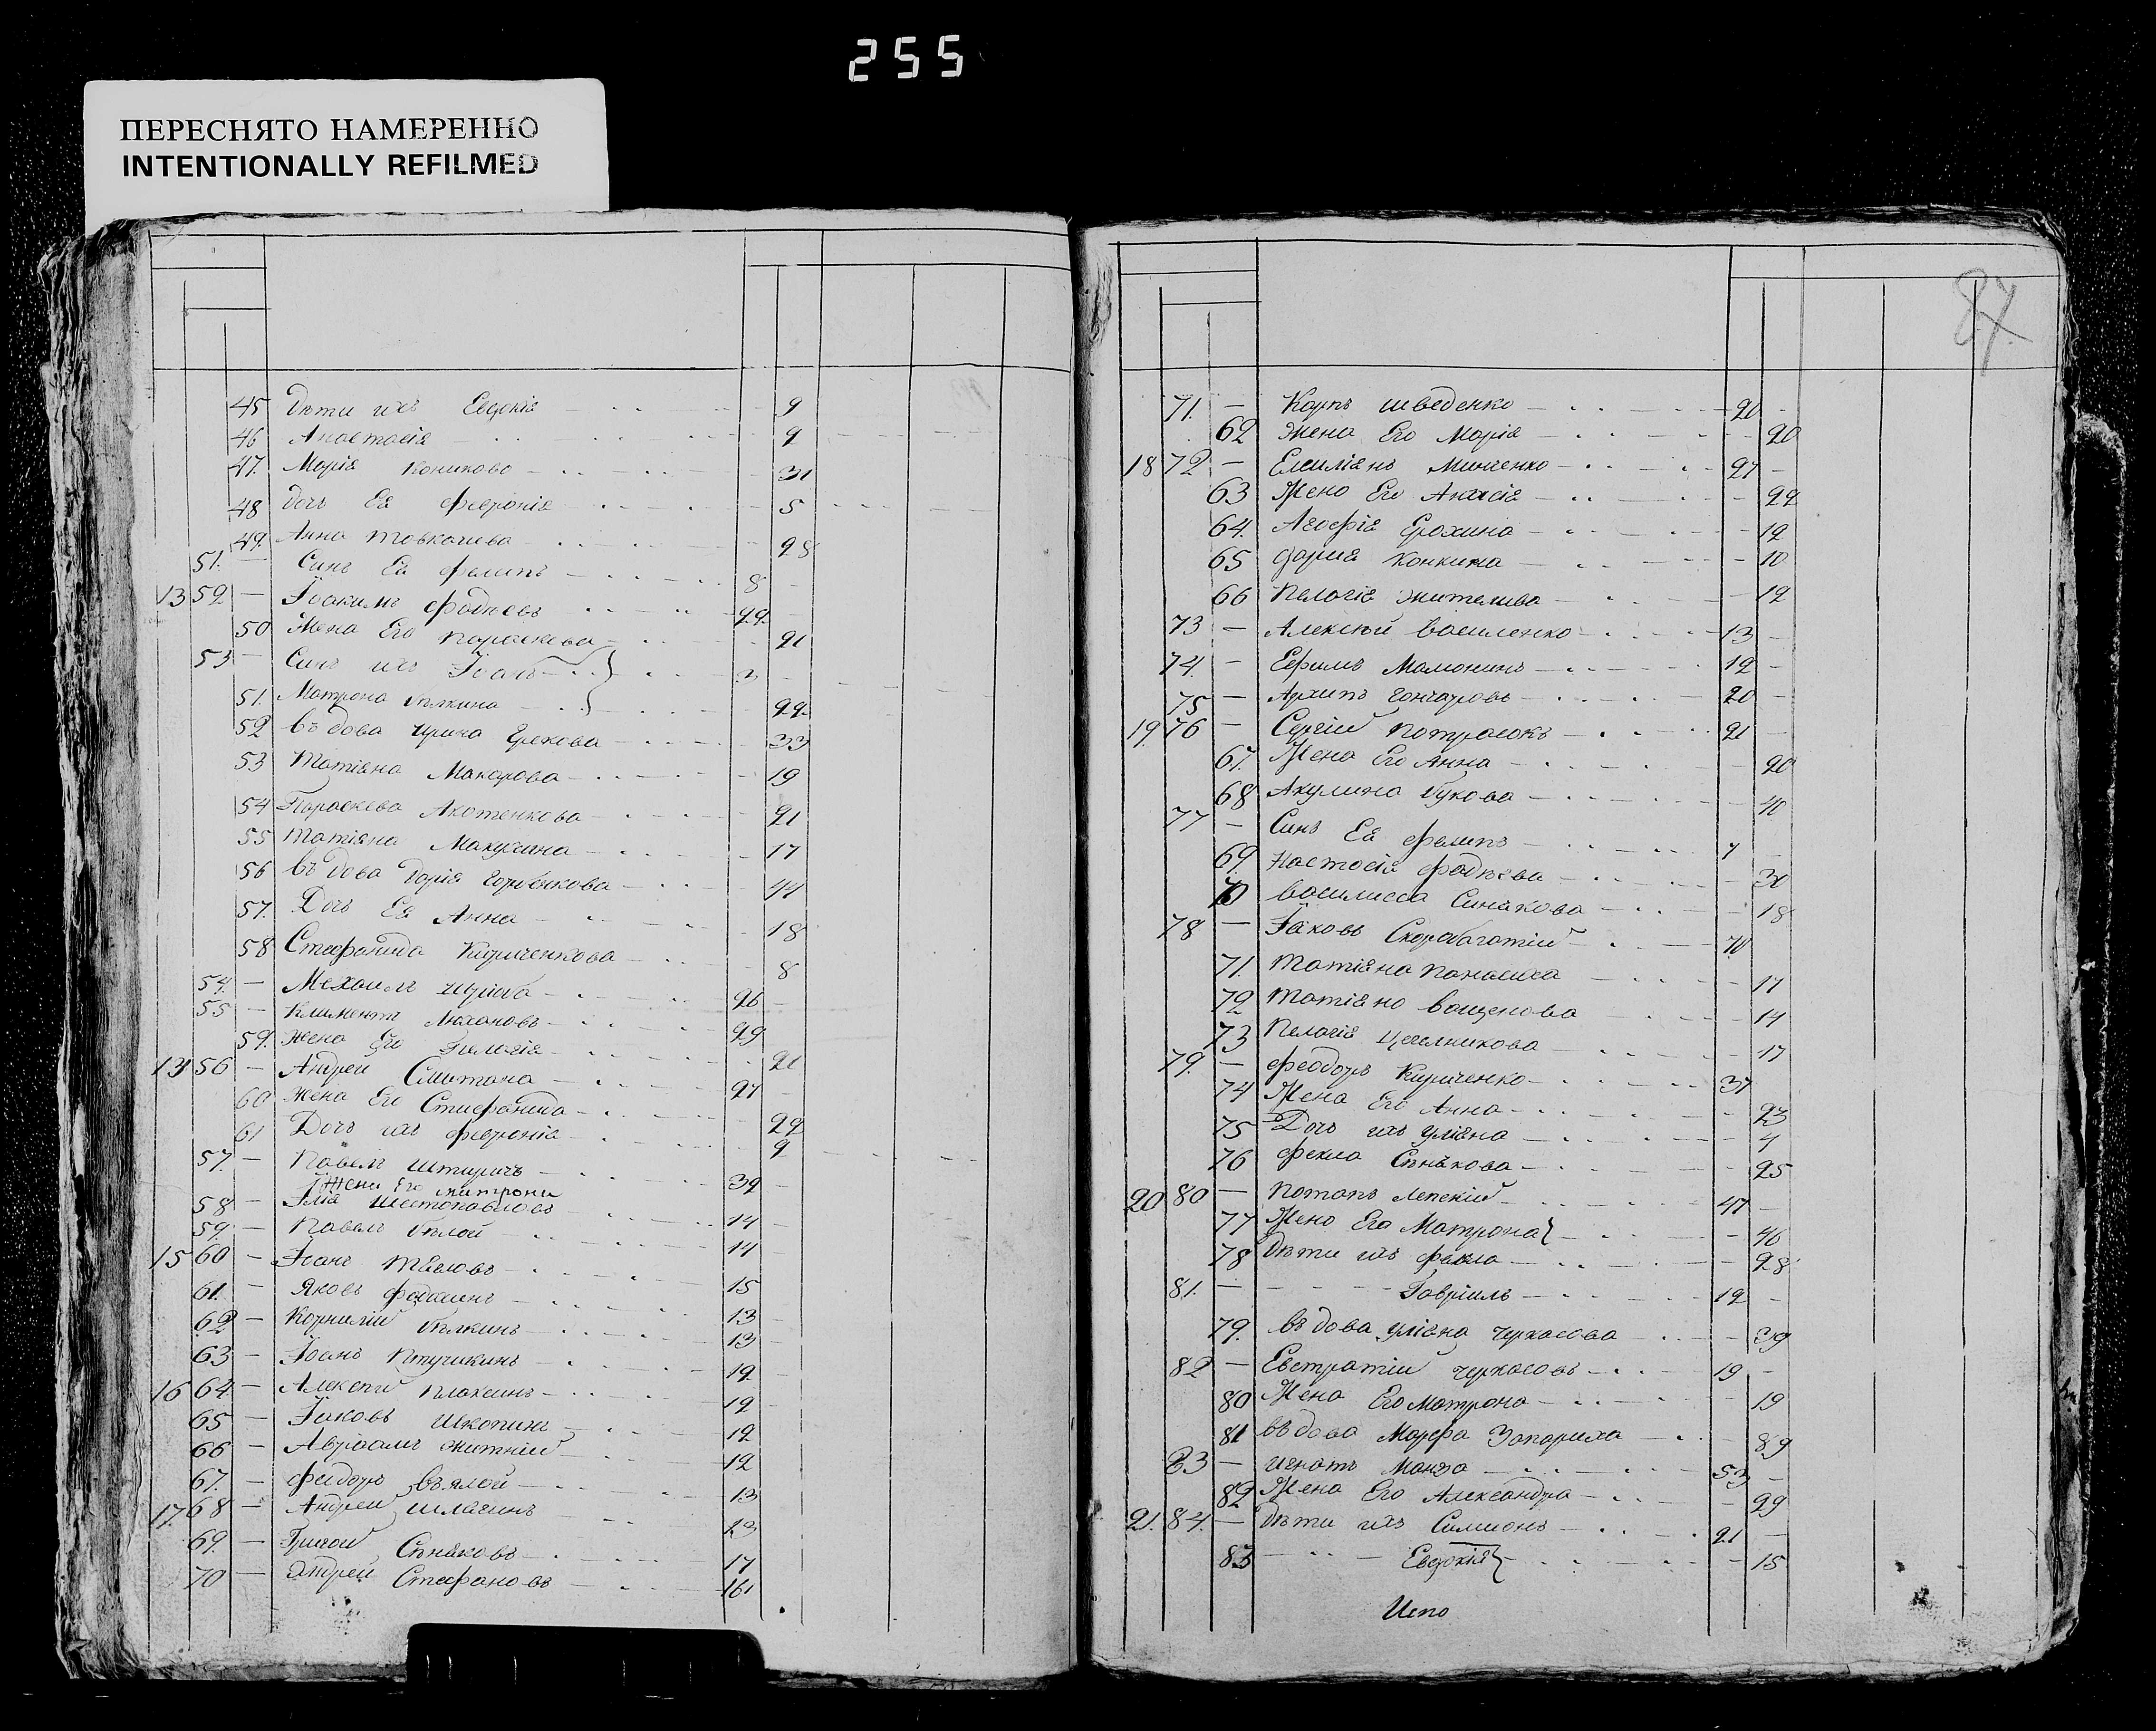 255
ПЕРЕСНЯТО НАМЕРЕННО
INTENTIONALLY REFILMED
45 Дѣти ихъ Евдокія 9
46 Анастасія 9
47. Марія Коникова 31
48 дочь Ея Февронія 5
49. Анна Товкачева 28
51. — Синъ Ея Филипъ 8
13 52 — Іоакимъ Фодневъ 22
50 Жена Его Параскева 21
53 — Синъ ихъ Іоанъ 3
51. Матрона Белкина 22
52 въдова Ирина Грекова 33
53 Татіяна Макарова 19
54 Параскева Акотенкова 21
55 Татіяна Макухина 17
56 въдова Дарія Горбенкова 44
57. Дочь Ея Анна 18
58 Стефанида Кириченкова 8
54. — Михаилъ 26
55 — Климентъ Лихановъ 29
59. жена Его Пелагія 21
13 56 — Андрей Сметана 27
60 жена Его Стефанида 22
61 Дочь ихъ Февронія 9
57. — Павелъ 32
Жена Его Митрона
58 — Ілія Шестопаловъ 14
59. — Павелъ Белой 14
15 60 — Іоанъ 15
61. — Яковъ 13
62 — Корнилій Белкинъ 13
63 — Іоанъ Птичкинъ 12
16 64. — Алексей Плаксинъ 12
65 — Іаковъ Шкопиха 12
66 — Авраамъ Житній 12
67. — Феодоръ Вялой 13
17. 68 — Андрей Шлагинъ 13
69. — Григорій Сеняковъ 17
70 — Андрей Стефановъ 16
87.
71. — Карпъ Шведенко 20
62 жена Его Марія 20
18 72 — Емиліянъ Минченко 27
63 Жена Его Анисія 22
64. Агафія Ерохина 12
65 Дарія Конкина 10
66 Пелагія Жителива 12
73 — Алексѣй Василенко 13
74. — Ефимъ Мамонинъ 12
75 — Архипъ Гончаровъ 20
19. 76 — Сергій Потрасокъ 21
67. Жена Его Анна 20
68 Акулина Гукова 40
77 — Синъ Ея Филипъ 7
69. Настасія Фоднева 30
70 Василисса Синякова 18
78 — Іаковъ Скоробагатій 70
71. Татіяна 17
72 Татіяна Ващенова 14
73 Пелагія Цегелникова 17
79. — Феодоръ Кириченко 37
74 Жена Его Анна 23
75 Дочь ихъ Уліяна 4
76 Фекла Сенякова 25
20 80 — Потапъ Лепскій 47
77 Жена Его Матрона 46
78 Дѣти ихъ Фекла 28
81. — Гавріилъ 12
79. въдова Уліяна Черкасова 39
82 — Евстратій Черкасовъ 19
80 Жена Его Матрона 19
81 въдова Марфа Запариха 89
83 — Игнатъ Манза 53
82 Жена Его Александра 29
21. 84. — Дѣти ихъ Симионъ 21
83 — Евдокія 15